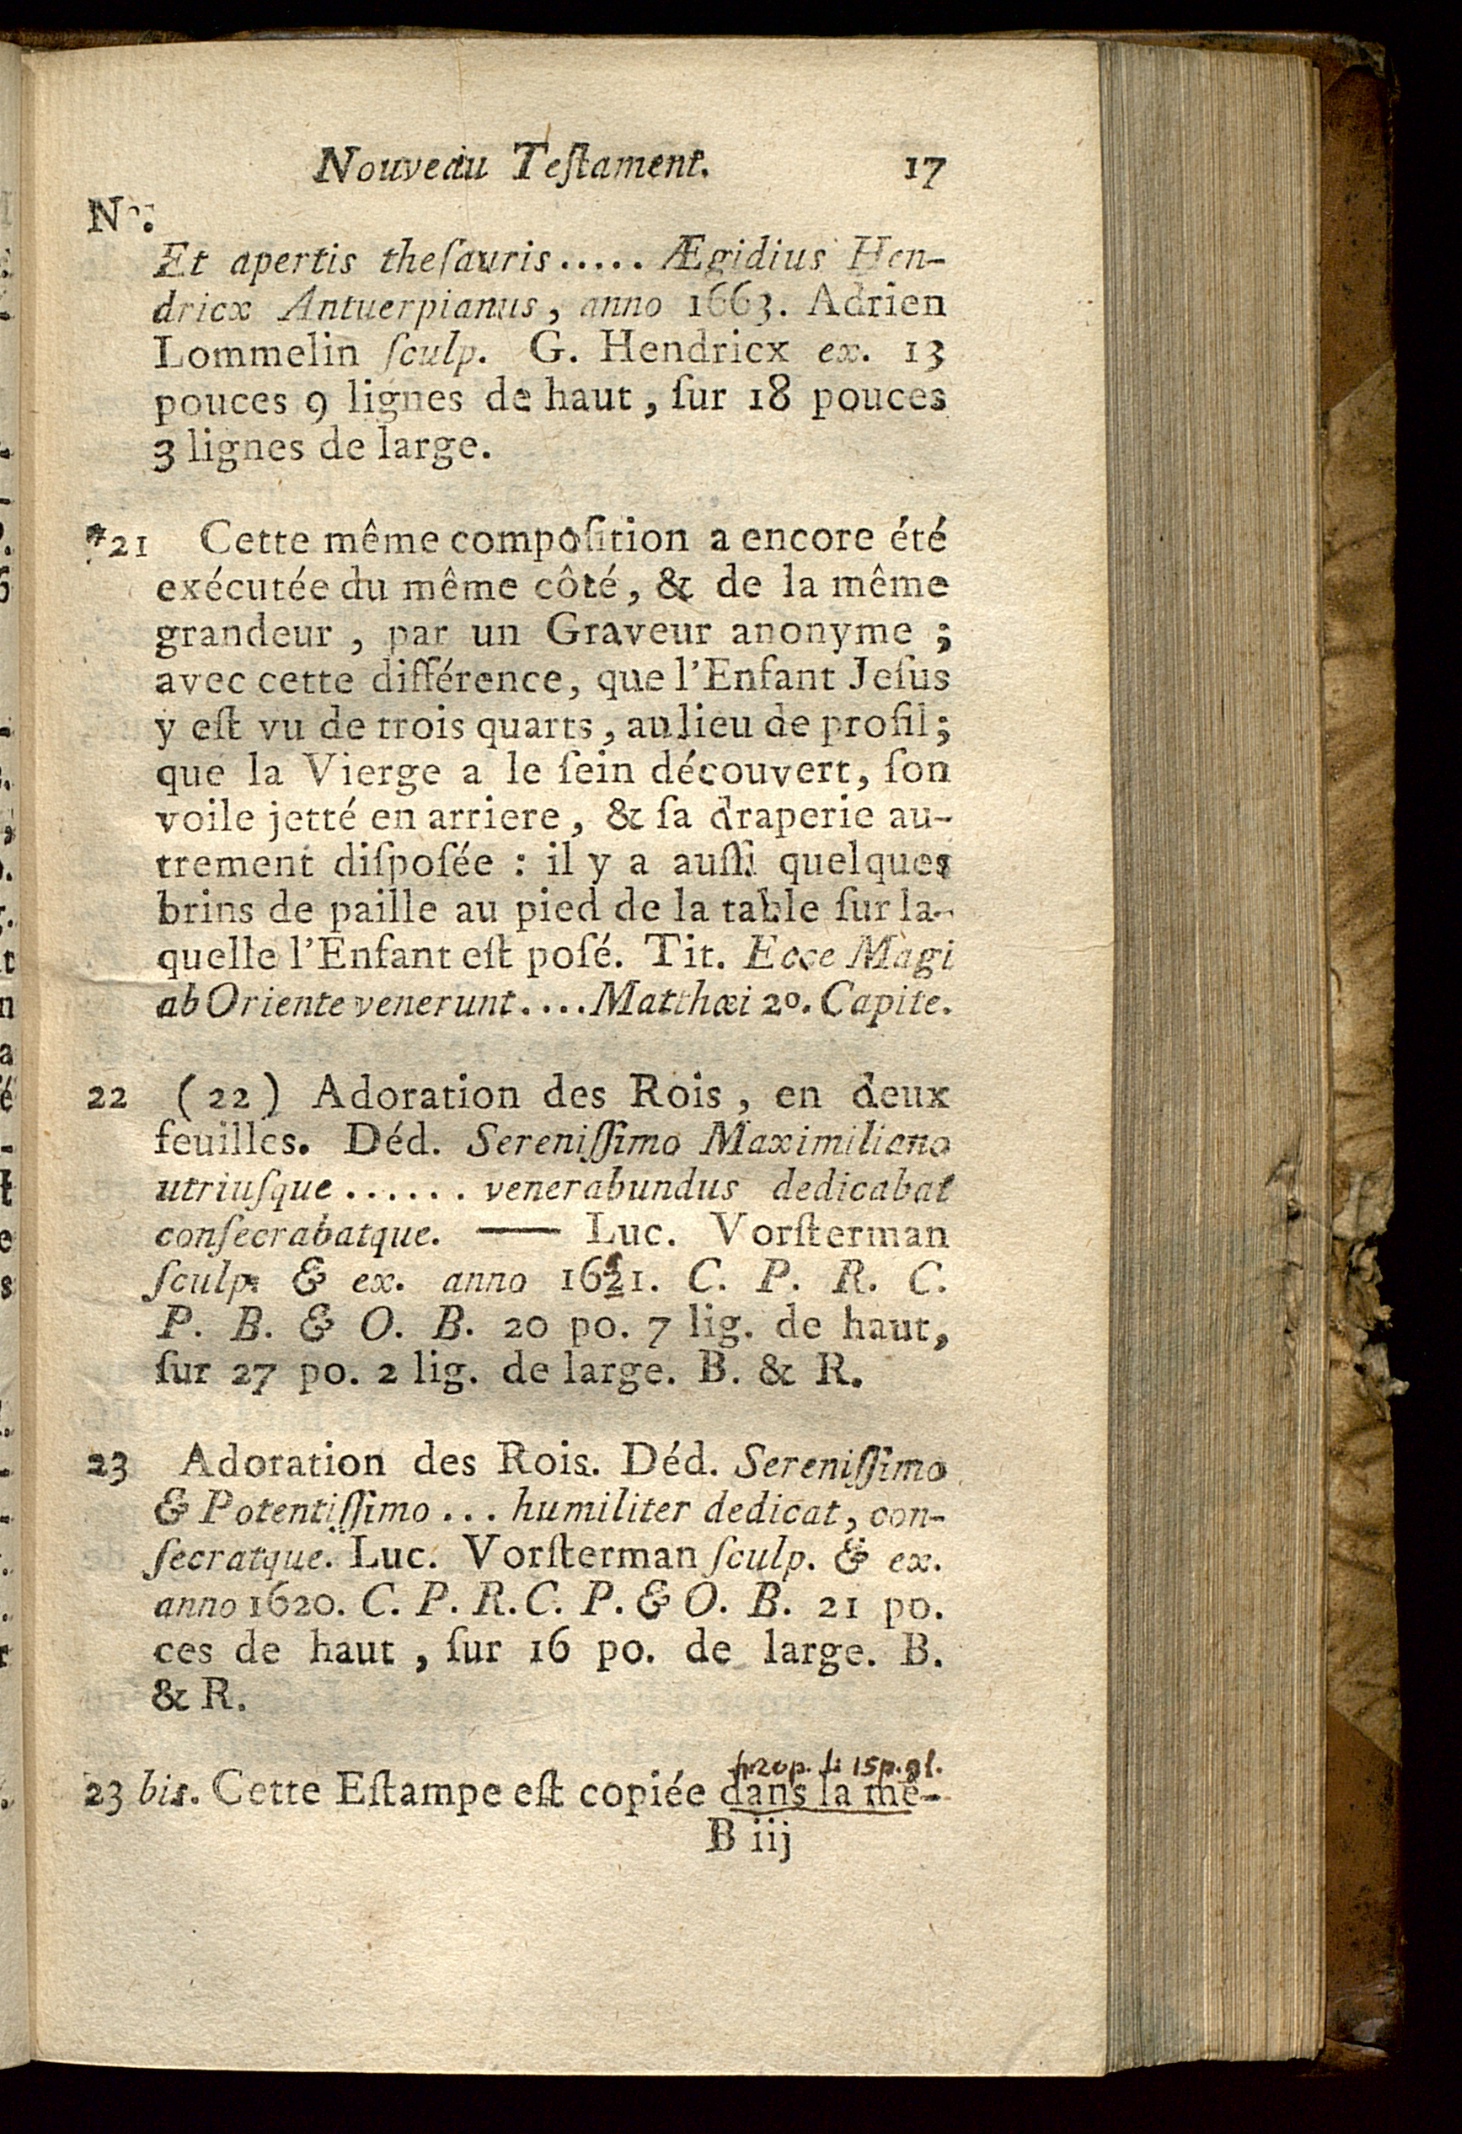 Nouveau Teſtament. 17
Nos.
Et apertis theſauris..... Ægidius Hen-
dricx Antuerpianus, anno 1663. Adrien
Lommelin ſculp. G. Hendricx ex. 13
pouces 9 lignes de haut, ſur 18 pouces
3 lignes de large.
*21 Cette même compoſition a encore été
exécutée du même côté, & de la même
grandeur, par un Graveur anonyme;
avec cette différence, que l'Enfant Jeſus
y eſt vu de trois quarts, au lieu de profil;
que la Vierge a le ſein découvert, ſon
voile jetté en arriere, & ſa draperie au-
trement diſpoſée : il y a auſſi quelques
brins de paille au pied de la table ſur la-
quelle l'Enfant eſt poſé. Tit. Ecce Magi
ab Oriente venerunt....Matthæi 2o. Capite.
22 (22) Adoration des Rois, en deux
feuilles. Déd. Sereniſſimo Maximiliano
utriuſque...... venerabundus dedicabat
conſecrabatque. — Luc. Vorſterman
ſculp. & ex. anno 1621. C. P. R. C.
P. B. & O. B. 20 po. 7 lig. de haut,
ſur 27 po. 2 lig. de large. B. & R.
23 Adoration des Rois. Déd. Sereniſſimo
& Potentiſſimo... humiliter dedicat, con-
ſecratque. Luc. Vorſterman ſculp. & ex.
anno 1620. C. P. R. C. P. & O. B. 21 po.
ces de haut, ſur 16 po. de large. B.
& R.
20p. 15p. 9l.
23 bis. Cette Eſtampe eſt copiée dans la mê-
B iij